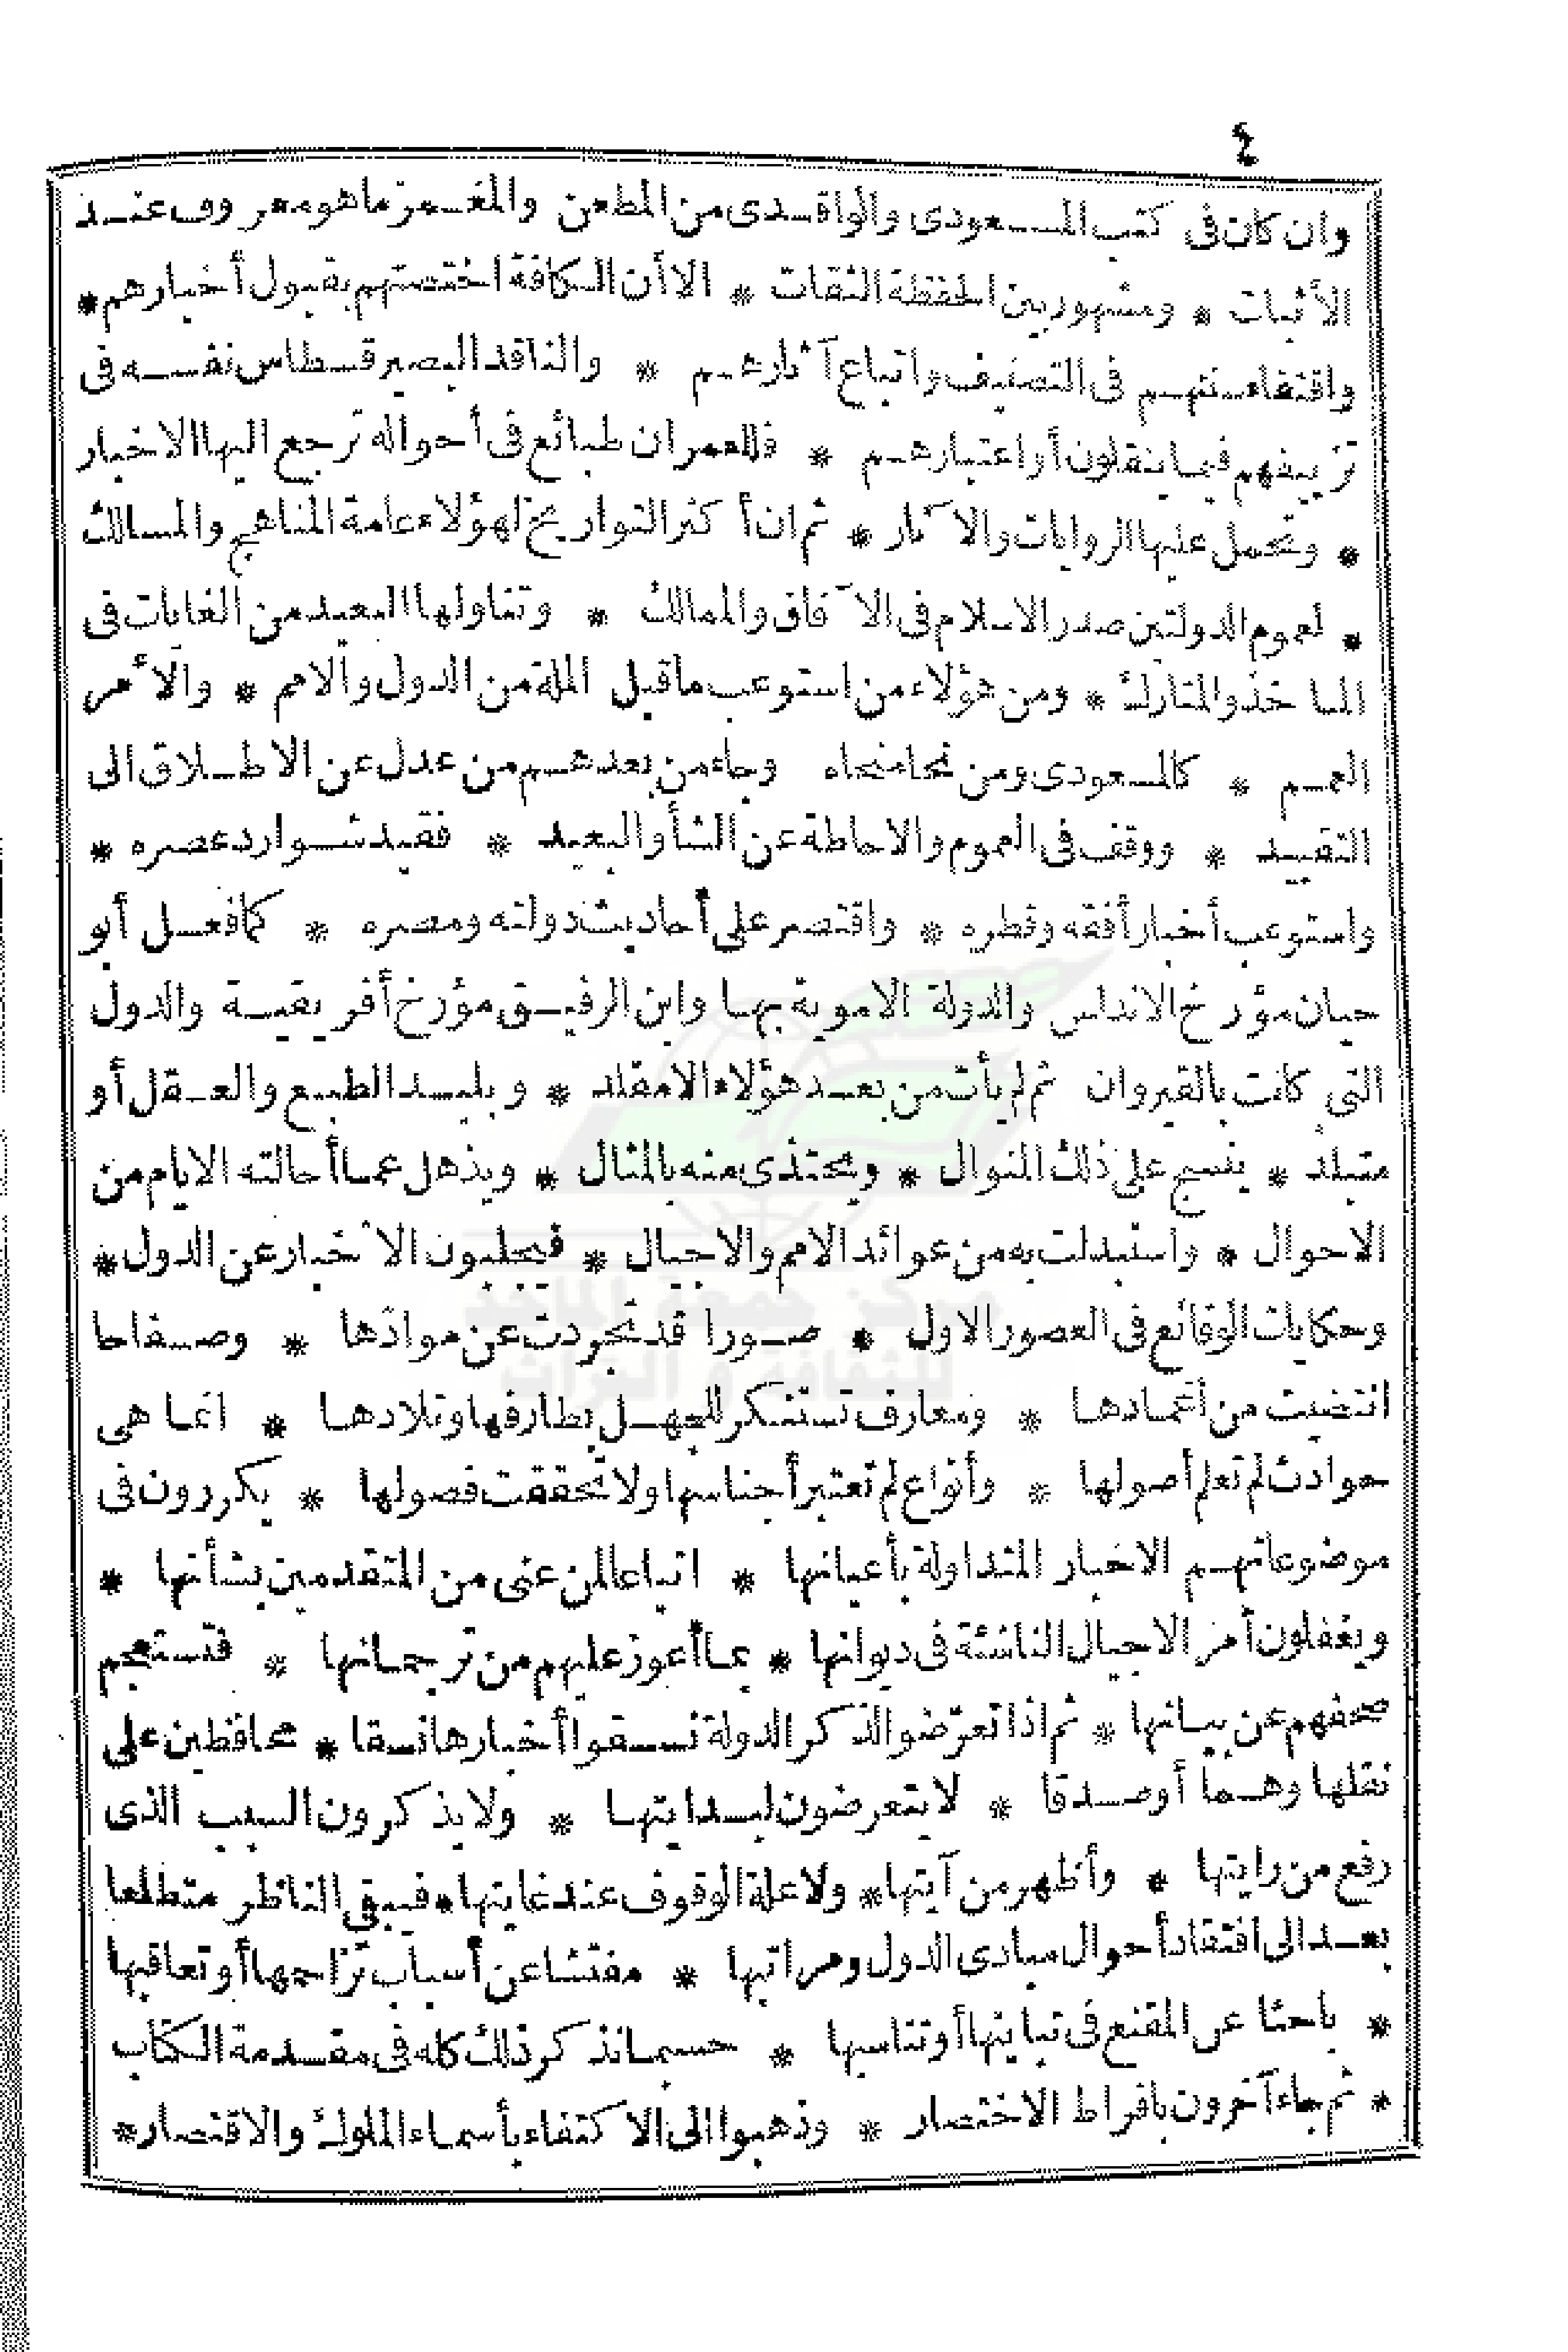 ٤
وان كان فى كتب المسعودى والواقدى من المطعن والمغمز ما هو معروف عند
الأثبات * ومشهور بين الحفظة الثقات * الا أن الكافة اختصتهم بقبول أخبارهم *
واقتفاء سننهم فى التصنيف واتباع آثارهم * والناقد البصير قسطاس نفسه فى
تزييفهم فيما ينقلون أو اعتبارهم * فللعمران طبائع فى أحواله ترجع اليها الاخبار
* وتحمل عليها الروايات والآثار * ثم ان أكثر التواريخ لهؤلاء عامة المناهج والمسالك
* لعموم الدولتين صدر الاسلام فى الآفاق والممالك * وتناولها البعيد من الغايات فى
المآخذ والمتارك * ومن هؤلاء من استوعب ما قبل الملة من الدول والامم * والأمر
العمم * كالمسعودى ومن نحا منحاه وجاء من بعدهم من عدل عن الاطلاق الى
التقييد * ووقف فى العموم والاحاطة عن الشأو البعيد * فقيد شوارد عصره *
واستوعب أخبار أفقه وقطره * واقتصر على أحاديث دولته ومصره * كما فعل أبو
حيان مؤرخ الاندلس والدولة الاموية بها وابن الرفيق مؤرخ أفريقية والدول
التى كانت بالقيروان ثم لم يأت من بعد هؤلاء الا مقلد * وبليد الطبع والعقل أو
متبلد * ينسج على ذلك المنوال * ويحتذى منه بالمثال * ويذهل عما أحالته الايام من
الاحوال * واستبدلت به من عوائد الامم والاجيال * فيجلبون الأخبار عن الدول *
وحكايات الوقائع فى العصور الاول * صورا قد تجردت عن موادّها * وصفاحا
انتضيت من أغمادها * ومعارف تستنكر للجهل بطارفها وتلادها * انما هى
حوادث لم تعلم أصولها * وأنواع لم تعتبر أجناسها ولا تحققت فصولها * يكررون فى
موضوعاتهم الاخبار المتداولة بأعيانها * اتباعا لمن عنى من المتقدمين بشأنها *
ويغفلون أمر الاجيال الناشئة فى ديوانها * بما أعوز عليهم من ترجمانها * فتستعجم
صحفهم عن بيانها * ثم اذا تعرّضوا لذكر الدولة نسقوا أخبارها نسقا * محافظين على
نقلها وهما أو صدقا * لا يتعرضون لبدايتها * ولا يذكرون السبب الذى
رفع من رايتها * وأظهر من آيتها * ولا علة الوقوف عند غايتها * فيبقى الناظر متطلعا
بعد الى افتقاد أحوال مبادى الدول ومراتبها * مفتشا عن أسباب تزاحمها أو تعاقبها
* باحثا عن المقنع فى تباينها أو تناسبها * حسبما نذكر ذلك كله فى مقدمة الكتاب
* ثم جاء آخرون بافراط الاختصار * وذهبوا الى الاكتفاء بأسماء الملوك والاقتصار *
مركز جمعة الماجد
للثقافة و التراث